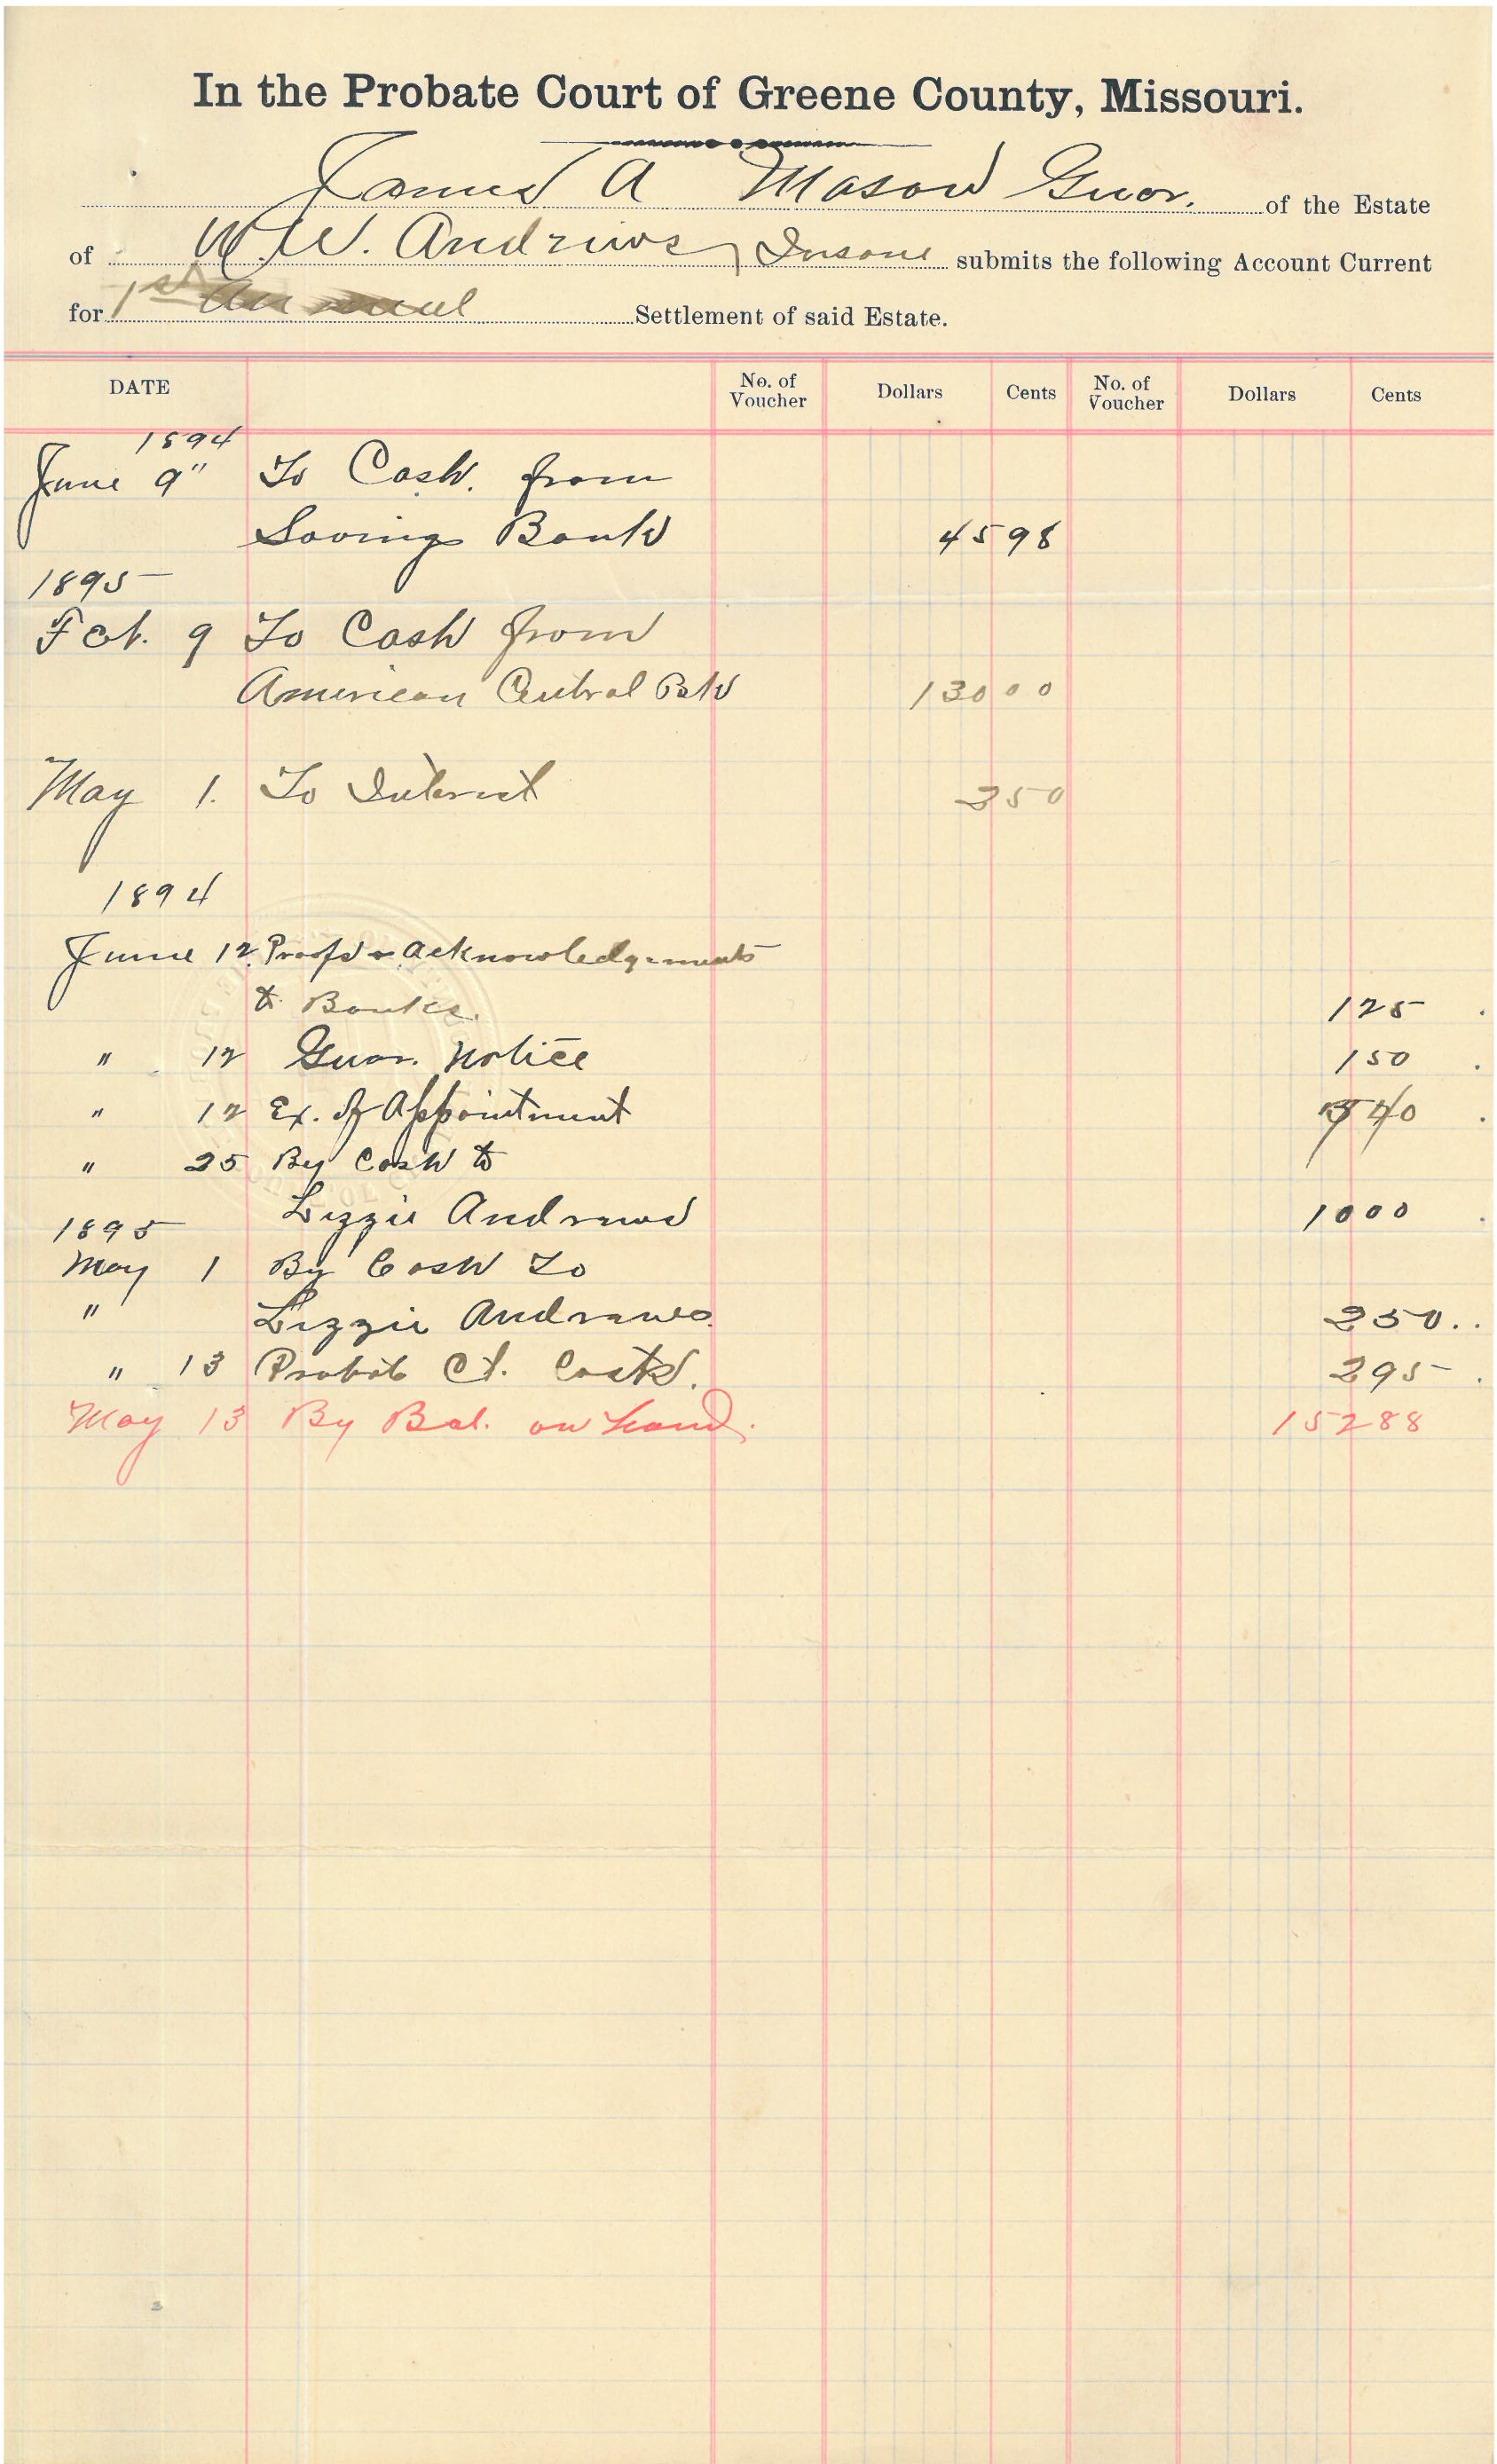 In the Probate Court of Greene County, Missouri.
James A Mason Guar. of the Estate
of W. W. Andrews, Insane submits the following Account Current
for 1st Annual Settlement of said Estate.
DATE No. of Voucher Dollars Cents No. of Voucher Dollars Cents
1894
June 9" To Cash. from
Savings Bank 45 98
1895
Feb. 9 To Cash from
American Central Bk 130 00
May 1. To Interest 3 50
1894
June 12 Proofs & Acknowledgements
to Banks. 1 25
" 12 Guar. Notice 1 50
" 12 Ex. of Appointment 40
" 25 By Cash to
Lizzie Andrews 10 00
1895
May 1 By Cash To
" Lizzie Andrews 2 50
" 13 Probate Ct. Costs. 2 95
May 13 By Bal. on hand. 152 88